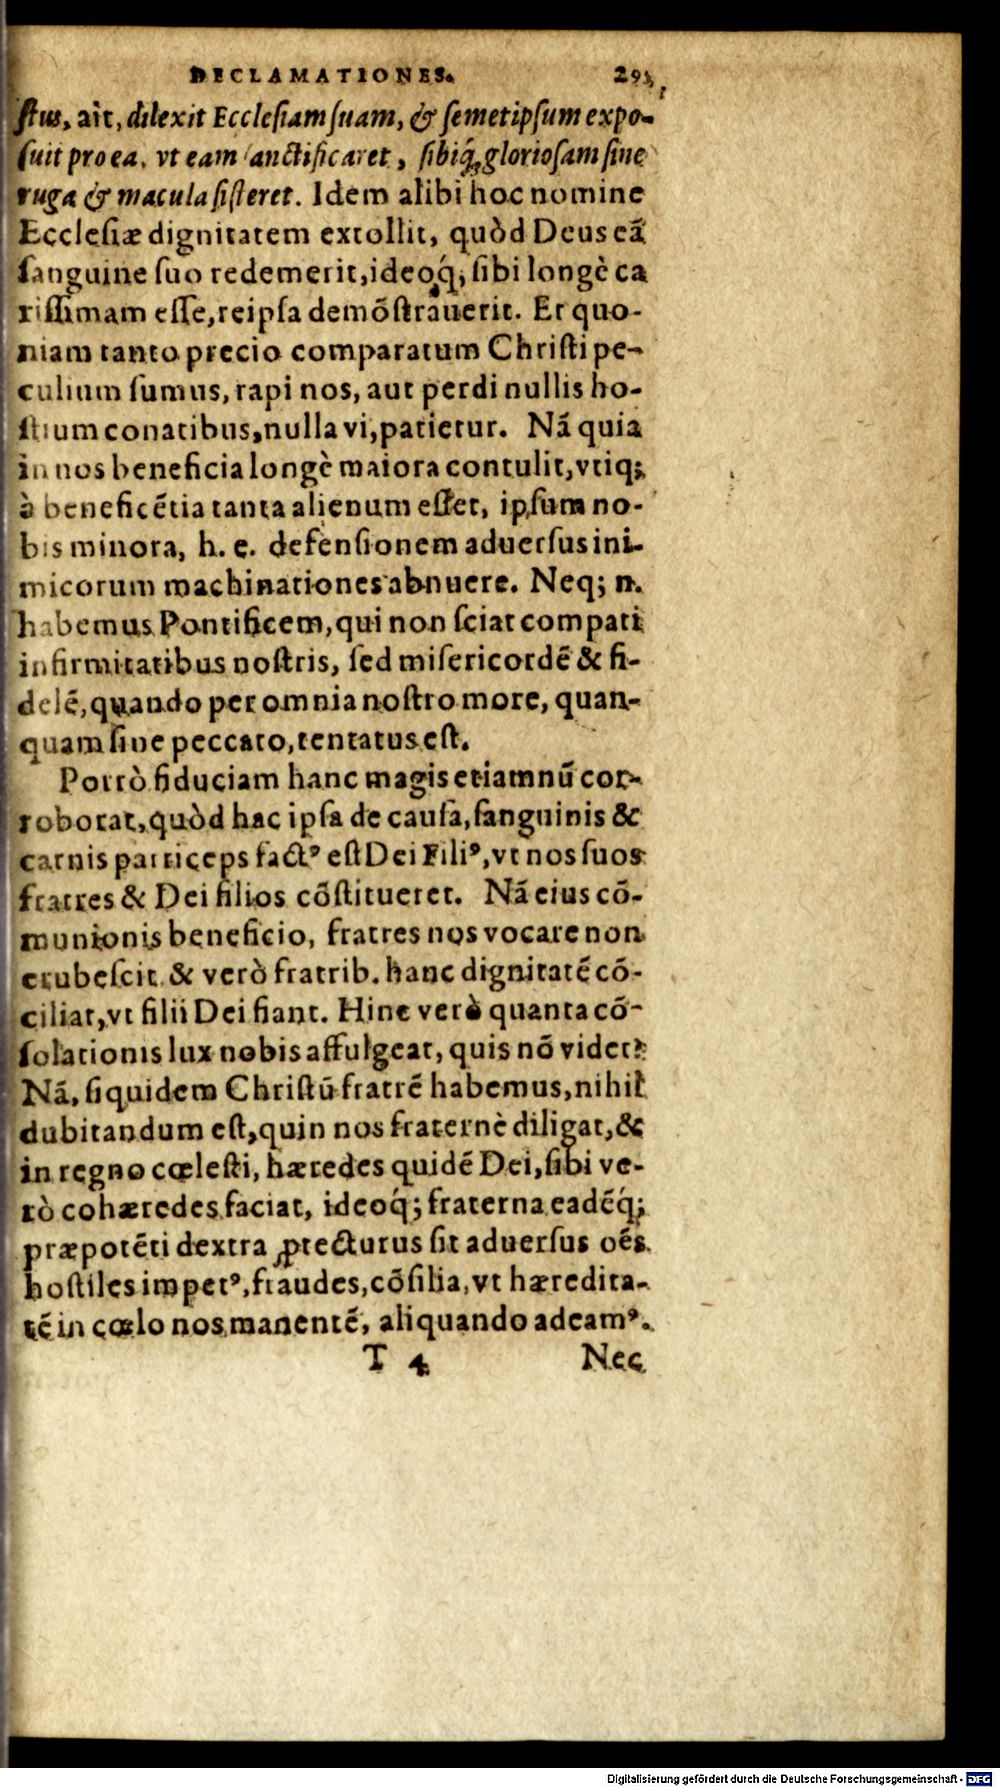 DECLAMATIONES. 295
ſtus, ait, dilexit Eccleſiam ſuam, & ſemetipſum expo-
ſuit pro ea, vt eam ſanctificaret, ſibiq́; glorioſam ſine
ruga & macula ſiſteret. Idem alibi hoc nomine
Eccleſiæ dignitatem extollit, quòd Deus eã
ſanguine ſuo redemerit, ideoq́; ſibi longè ca
riſſimam eſſe, reipſa demõſtrauerit. Et quo-
niam tanto precio comparatum Chriſti pe-
culium ſumus, rapi nos, aut perdi nullis ho-
ſtium conatibus, nulla vi, patietur. Nã quia
in nos beneficia longè maiora contulit, vtiq;
à beneficẽtia tanta alienum eſſet, ipſum no-
bis minora, h. e. defenſionem aduerſus ini-
micorum machinationes abnuere. Neq; n.
habemus Pontificem, qui non ſciat compati
infirmitatibus noſtris, ſed miſericordẽ & fi-
delẽ, quando per omnia noſtro more, quan-
quam ſine peccato, tentatus eſt.
Porrò fiduciam hanc magis etiamnũ cor-
roborat, quòd hac ipſa de cauſa, ſanguinis &
carnis particeps factꝰ eſt Dei Filiꝰ, vt nos ſuos
fratres & Dei filios cõſtitueret. Nã eius cõ-
munionis beneficio, fratres nos vocare non
erubeſcit & verò fratrib. hanc dignitatẽ cõ-
ciliat, vt filii Dei fiant. Hinc verò quanta cõ-
ſolationis lux nobis affulgeat, quis nõ videt?
Nã, ſiquidem Chriſtũ fratrẽ habemus, nihil
dubitandum eſt, quin nos fraternè diligat, &
in regno cœleſti, hæredes quidẽ Dei, ſibi ve-
rò cohæredes faciat, ideoq́; fraterna eadẽq́;
præpotẽti dextra ꝓtecturus ſit aduerſus oẽs
hoſtiles impetꝰ, fraudes, cõſilia, vt hæredita-
tẽ in cœlo nos manentẽ, aliquando adeamꝰ.
T 4 Nec
Digitalisierung gefördert durch die Deutsche Forschungsgemeinschaft - DFG